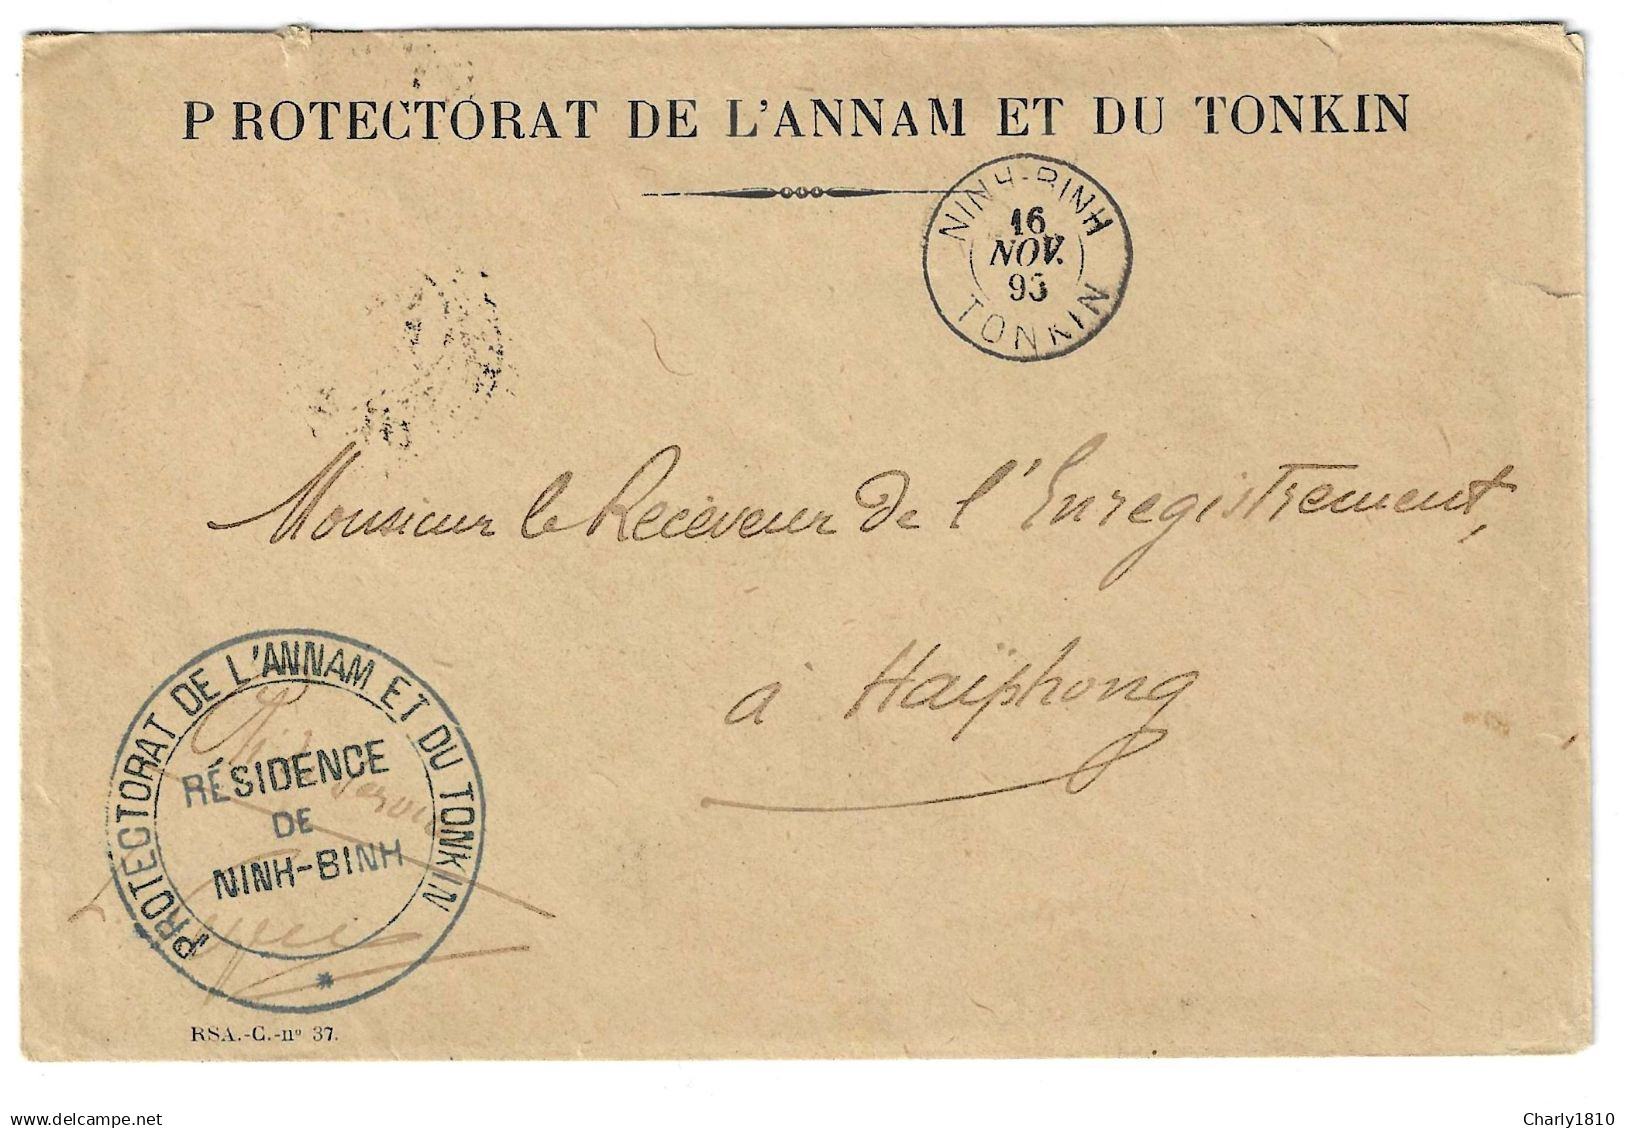 PROTECTORAT DE L'ANNAM ET DU TONKIN
NINH-BINH
16
NOV.
95
TONKIN
Monsieur le Receveur de l'Enregistrement,
à Haïphong
PROTECTORAT DE L'ANNAM ET DU TONKIN
RÉSIDENCE
DE
NINH-BINH
*
RSA.-C.-nº 37.
www.delcampe.net
Charly1810